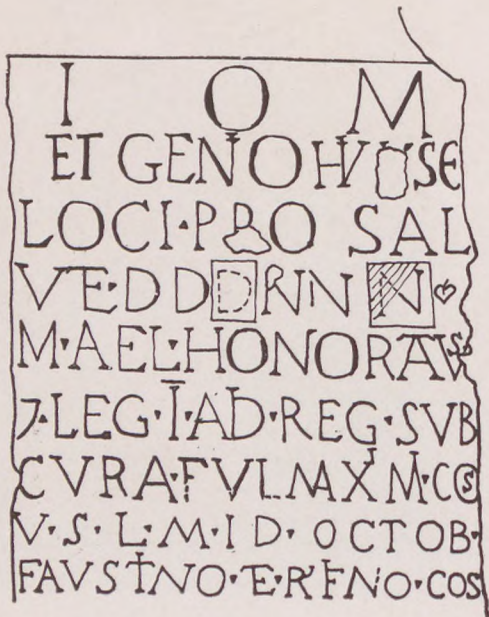 I O M
ET GENIO HVIVSE
LOCI·PRO SAL
VTE·DDD NN N
M·AEL·HONORATVS
7·LEG·I·AD·REG·SVB
CVRA·FVLMAXIM·COS
V·S·L·M·ID·OCTOB·
FAVSTINO·ET·RVFINO·COS